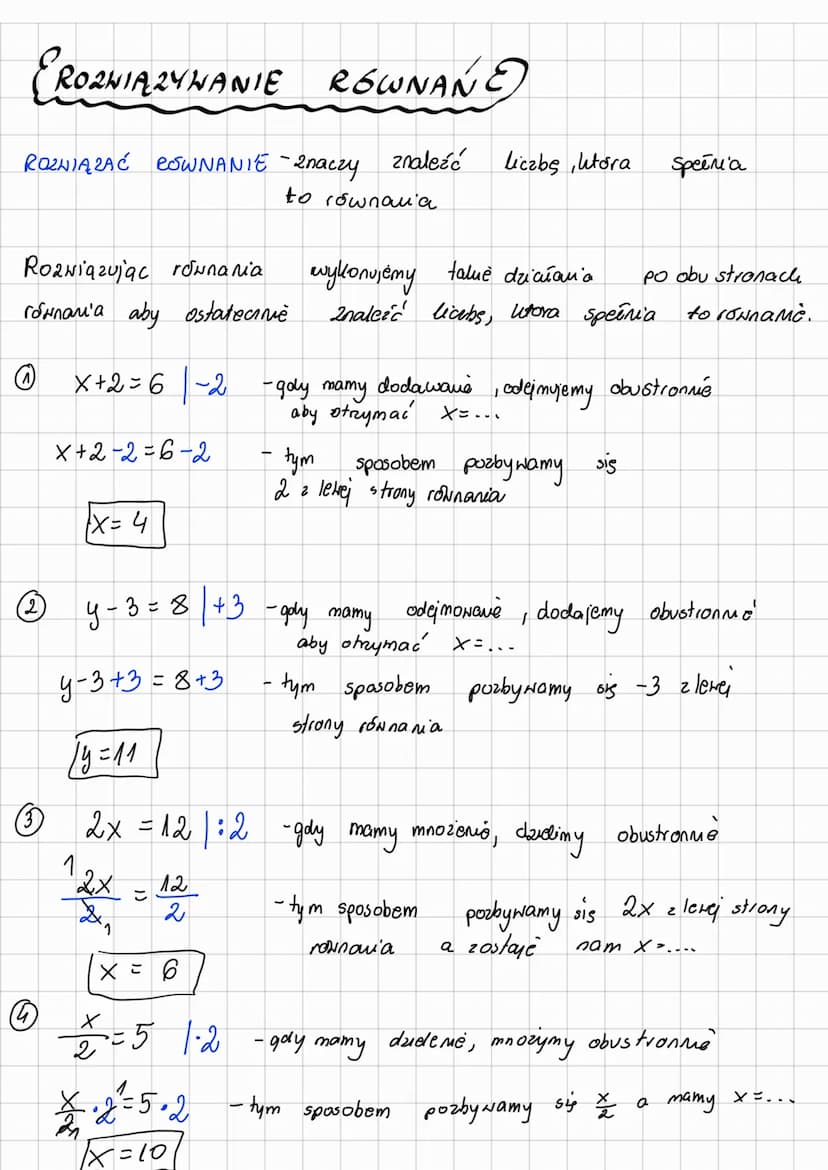 ROZWIĄZYWANIE RÓWNAŃ
ROZWIĄZAĆ RÓWNANIE - znaczy znaleźć liczbę, która spełnia
to równania
Rozwiązując równania wykonujemy takie działania po obu stronach
równania aby ostatecznie znaleźć liczbę, która spełnia to równanie.
① x+2=6 |-2 - gdy mamy dodawanie, odejmujemy obustronnie
aby otrzymać x=...
x+2-2=6-2 - tym sposobem pozbywamy się
2 z lewej strony równania
x=4
② y-3=8 |+3 - gdy mamy odejmowanie, dodajemy obustronnie
aby otrzymać x=...
y-3+3=8+3 - tym sposobem pozbywamy się -3 z lewej
strony równania
y=11
③ 2x=12 |:2 - gdy mamy mnożenie, dzielimy obustronnie
1
2x/2 1 = 12/2 - tym sposobem pozbywamy się 2x z lewej strony
równania a zostaje nam x=....
x = 6
④ x/2=5 |·2 - gdy mamy dzielenie, mnożymy obustronnie
x/2 1 ·2 1 =5·2 - tym sposobem pozbywamy się x/2 a mamy x=...
x=10